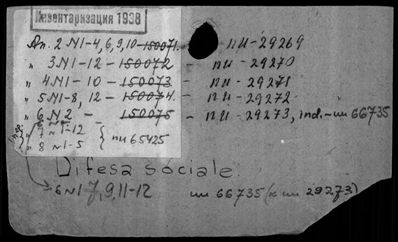 Инвентаризация 1938
Вп. 2 N1-4, 6, 9, 10 - 150071. - пи-29269
" 3 N1-12 - 150072 - пи-29270
" 4 N1-10 - 150073 - пи-29271
" 5 N1-8, 12 - 150074. - пи-29272
" 6 N 2 - 150075 - пи-29273, ind.-ши 66735
" 7 N 1-12
" 8 N 1-5 } пи 65425
Difesa sociale.
6 N1-7, 9, 11-12 ши 66735 (к ши 29273)